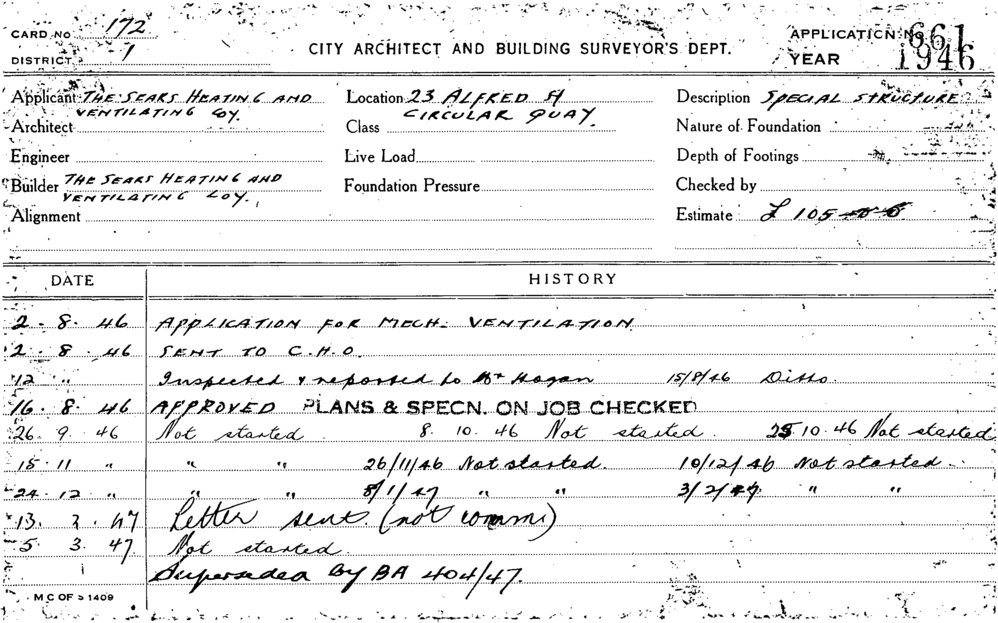 CARD NO 172
DISTRICT 1
CITY ARCHITECT AND BUILDING SURVEYOR'S DEPT.
APPLICATION No 661
YEAR 1946
Applicant THE SEARS HEATING AND
VENTILATING COY.
Architect
Engineer
Builder THE SEARS HEATING AND
VENTILATING COY.
Alignment
Location 23 ALFRED St
CIRCULAR QUAY.
Class
Live Load
Foundation Pressure
Description SPECIAL STRUCTURE
Nature of Foundation
Depth of Footings
Checked by
Estimate £ 105-0-0
DATE HISTORY
2 - 8 - 46 APPLICATION FOR MECH. VENTILATION
2 - 8 - 46 SENT TO C.H.O.
12 " Inspected & reported to Mr Hogan 15/8/46 Ditto
16. 8. 46 APPROVED PLANS & SPECN. ON JOB CHECKED
26. 9. 46 Not started 8. 10. 46 Not started 25 10. 46 Not started
15. 11 " " " 26/11/46 Not started. 10/12/46 Not started
24. 12 " " " 8/1/47 " " 3/2/47 " "
13. 2. 47 Letter sent. (not comm.)
5 3. 47. Not started.
Superseded By BA 404/47.
M C OF S 1409